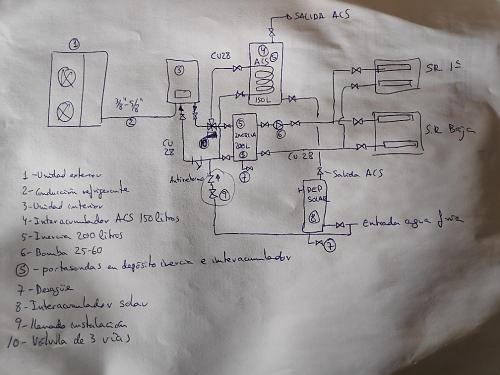 SALIDA ACS
1
4
ACS
S
150L
CU28
3
SR 1ª
3/8"-5/8"
2
5
INERCIA
200L
S
6
10
CU
28
S.R Baja
CU 28
7
Antiretorno
Salida ACS
9
DEP
SOLAR
8
Entrada agua fria
7
1 - Unidad exterior
2 - Conducción refrigerante
3 - Unidad interior
4 - Interacumulador ACS 150 litros
5 - Inercia 200 litros
6 - Bomba 25-60
S - portasondas en depósito inercia e interacumulador
7 - Desagüe
8 - Interacumulador solar
9 - llenado instalación
10 - Válvula de 3 vías